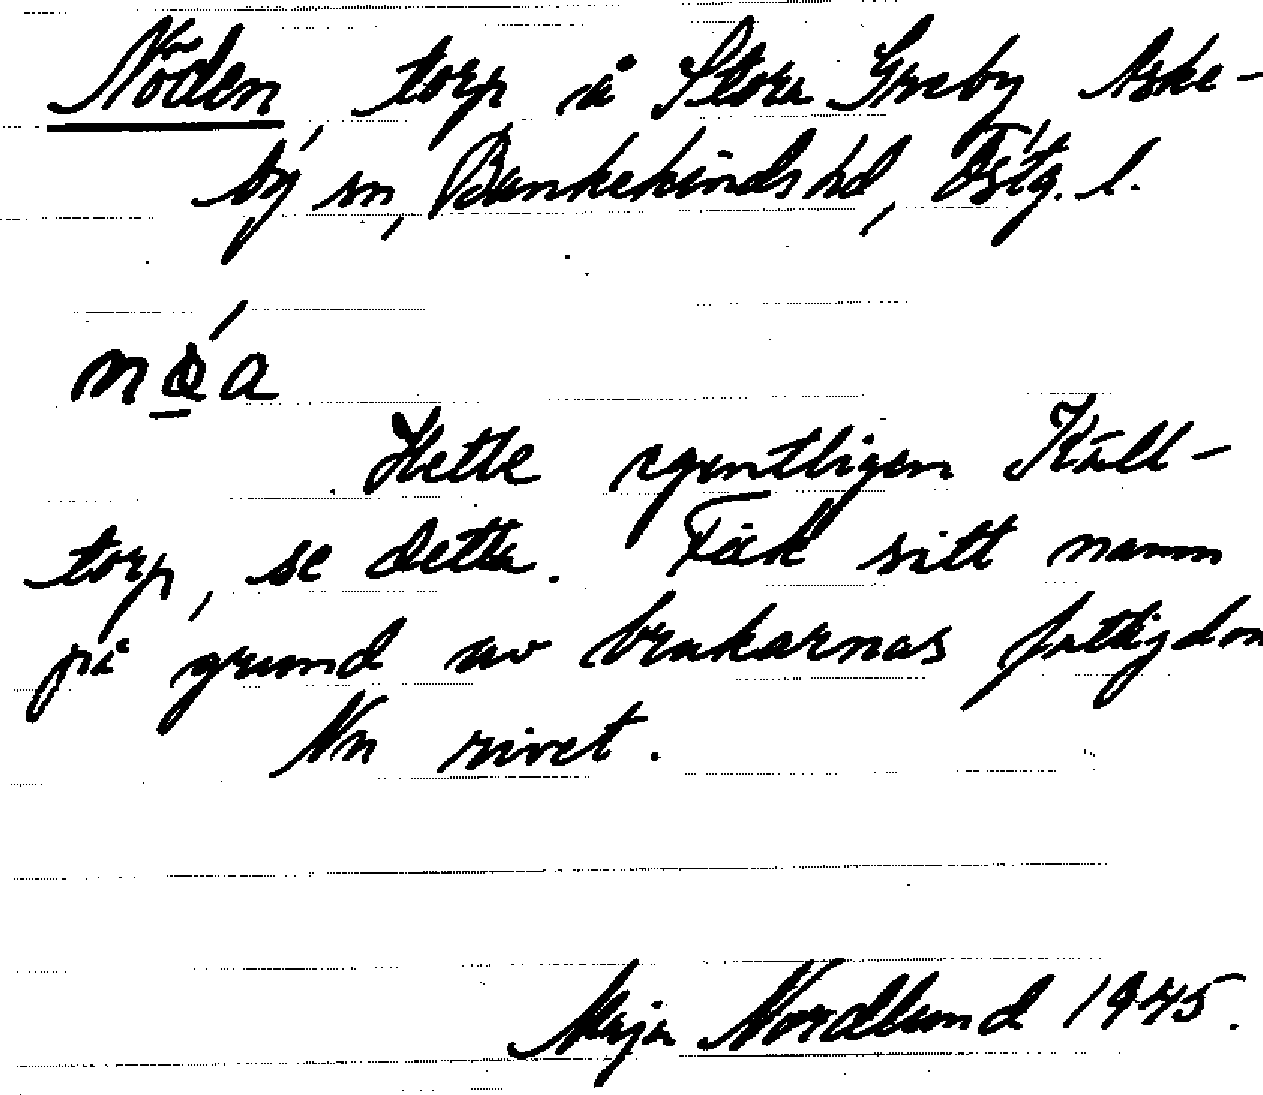 Nöden torp å Stora Greby Aske-
by sn, Bankekinds hd, Östg. l.
Hette egentligen Käll-
torp, se detta. Fick sitt namn
på grund av brukarnas fattigdom
Nu rivet.
Maja Nordlund 1945.